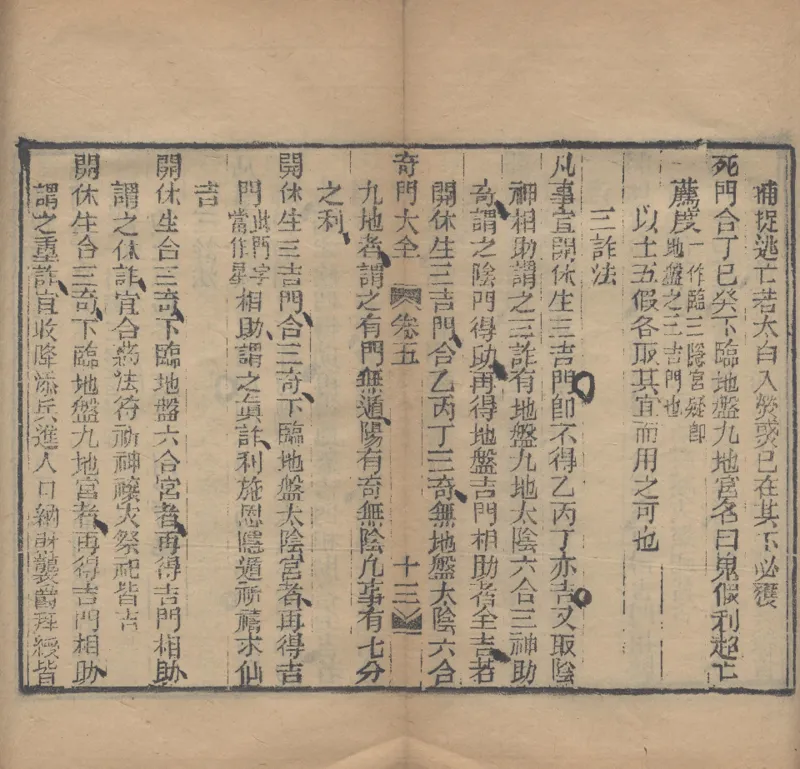 捕捉逃亡若太白入熒惑己在其下必獲
死門合丁己癸下臨地盤九地宮名曰鬼假利超亡
薦度一作臨三隱宮疑即地盤之三吉門也
以上五假各取其宜而用之可也
三詐法
凡事宜開休生三吉門卽不得乙丙丁亦吉又取陰
神相助謂之三詐有地盤九地太陰六合三神助
奇謂之陰門得助再得地盤吉門相助者全吉若
開休生三吉門合乙丙丁三奇無地盤太陰六合
奇門大全 卷五 十三
九地者謂之有門無遁陽有奇無陰凡事有七分
之利
開休生三吉門合三奇下臨地盤太陰宮者再得吉
門此門字當作星相助謂之眞詐利施恩隱遁祈禱求仙
吉
開休生合三奇下臨地盤六合宮者再得吉門相助
謂之休詐宜合藥法符祈神禳灾祭祀皆吉
開休生合三奇下臨地盤九地宮者再得吉門相助
謂之重詐宜收降添兵進人口納財襲爵拜綬皆